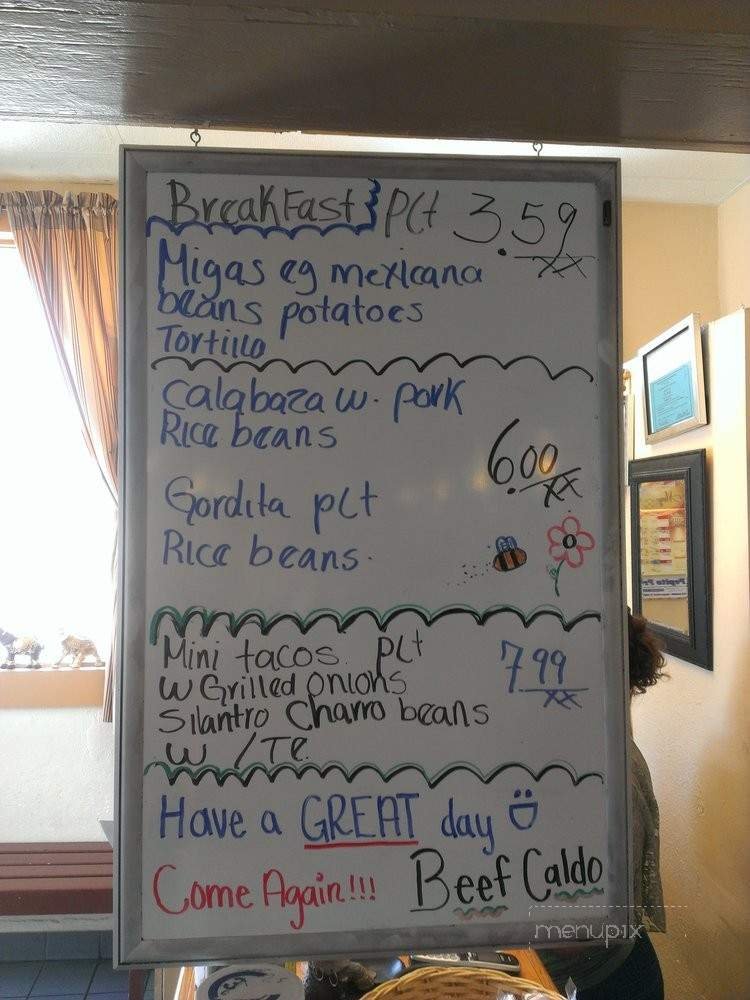 Breakfast plt 3.59
xx
Migas eg mexicana
beans potatoes
Tortilla
Calabaza w. pork
Rice beans
6.00
xx
Gordita plt
Rice beans.
Mini tacos plt
w Grilled onions
7.99
xx
Silantro Charro beans
w /TE
Have a GREAT day
Come Again!!! Beef Caldo
menupix